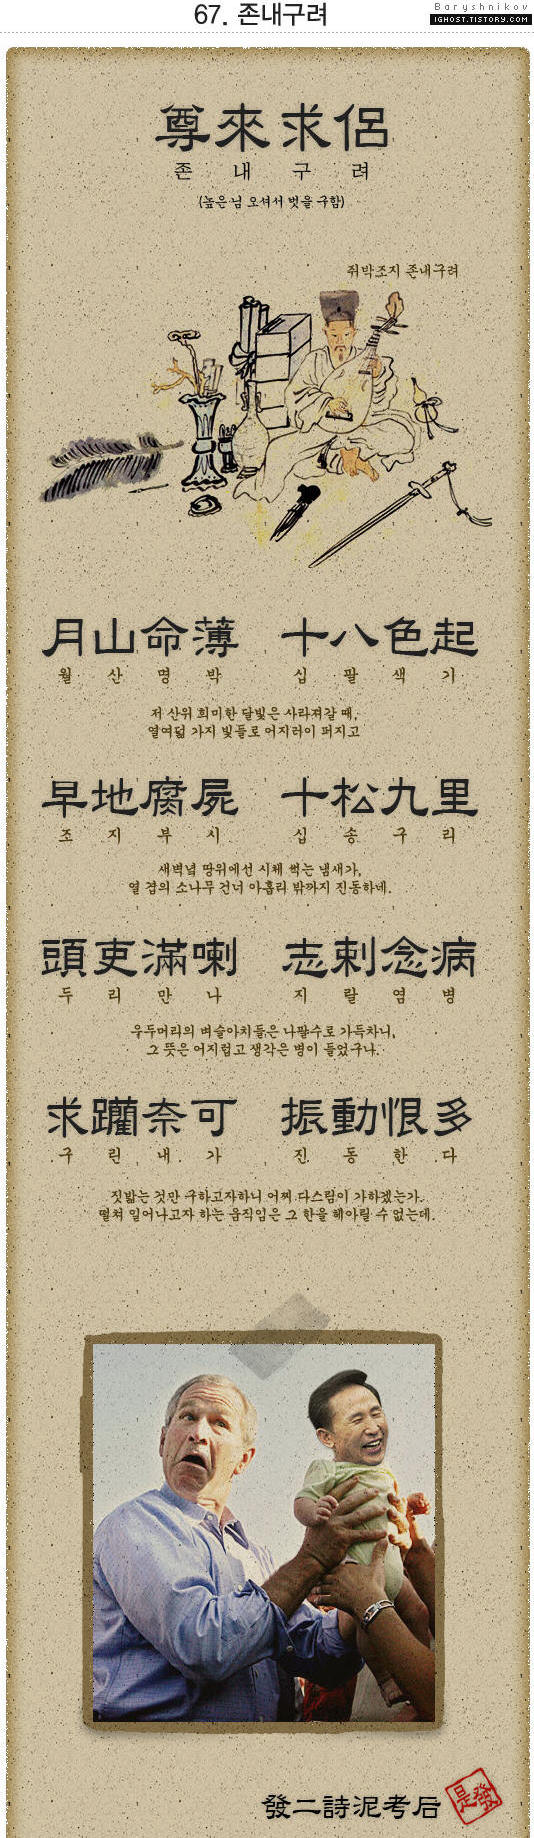 67. 존내구려
Baryshnikov
IGHOST.TISTORY.COM
尊來求侶
존 내 구 려
(높은 님 오셔서 벗을 구함)
쥐박조지 존내구려
月山命薄 十八色起
월 산 명 박 십 팔 색 기
저 산위 희미한 달빛은 사라져갈 때,
열여덟 가지 빛들로 어지러이 퍼지고
早地腐屍 十松九里
조 지 부 시 십 송 구 리
새벽녘 땅위에선 시체 썩는 냄새가,
열 겹의 소나무 건너 아홉리 밖까지 진동하네.
頭吏滿喇 志剌念病
두 리 만 나 지 랄 염 병
우두머리의 벼슬아치들은 나팔수로 가득차니,
그 뜻은 어지럽고 생각은 병이 들었구나.
求躪奈可 振動恨多
구 린 내 가 진 동 한 다
짓밟는 것만 구하고자하니 어찌 다스림이 가하겠는가.
떨쳐 일어나고자 하는 움직임은 그 한을 헤아릴 수 없는데.
發二詩泥考后
是發